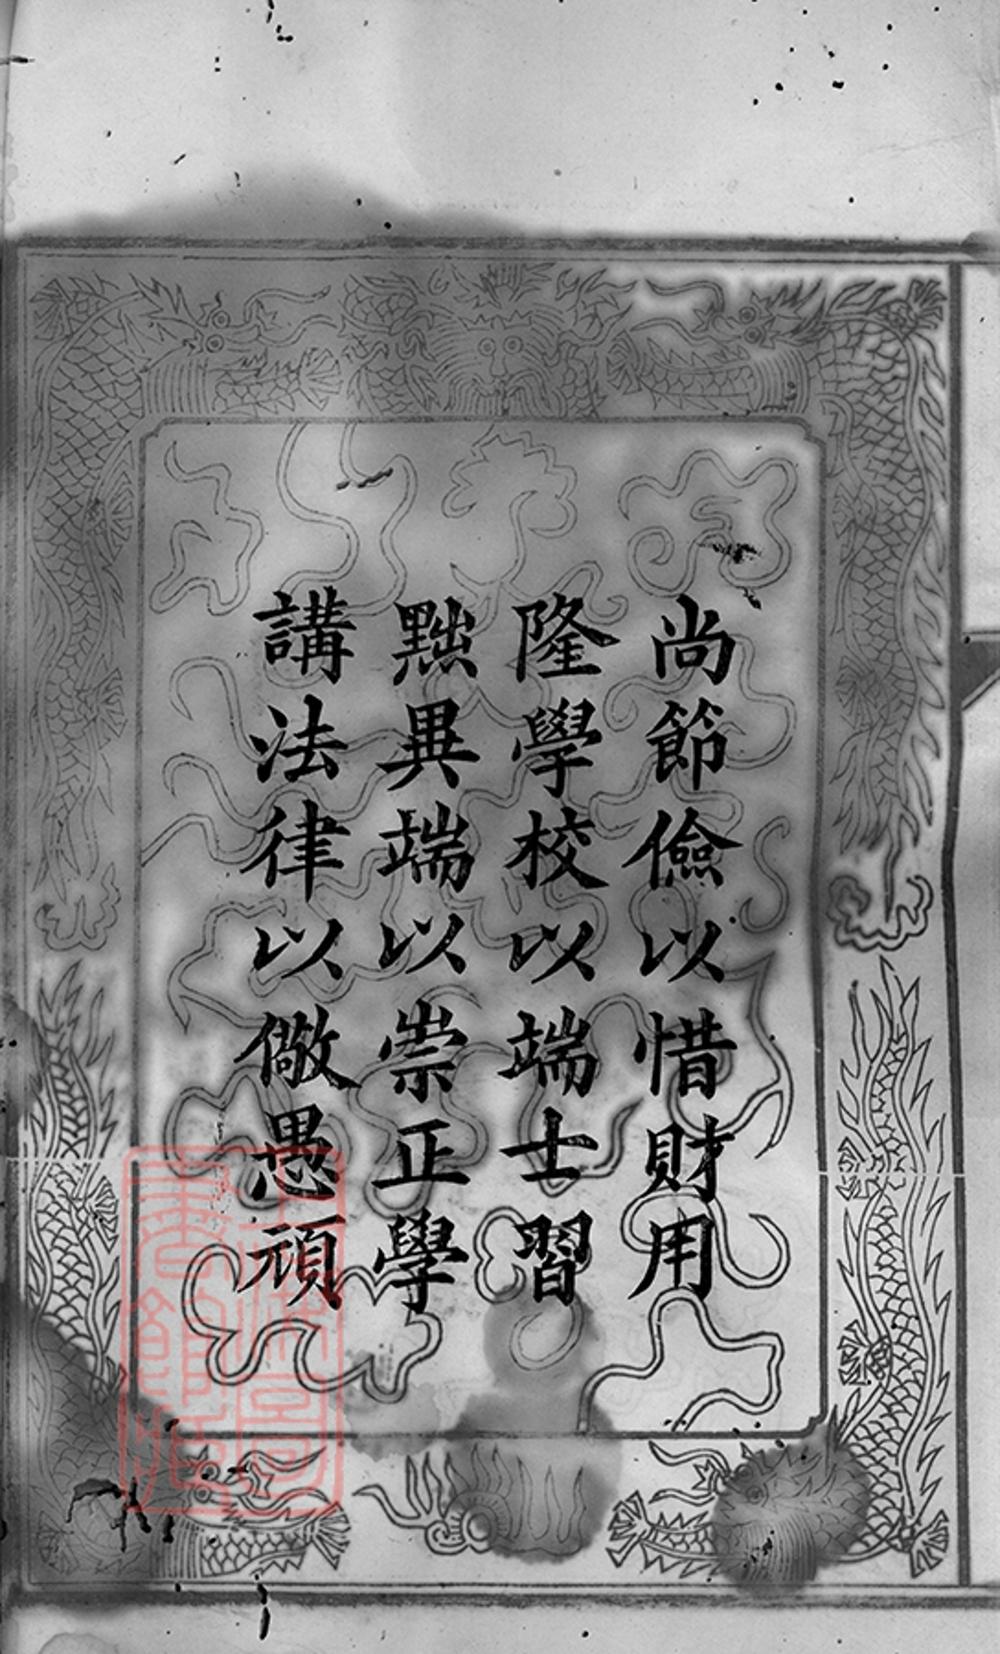 尚節儉以惜財用
隆學校以端士習
黜異端以崇正學
講法律以儆愚頑
上海圖書館藏